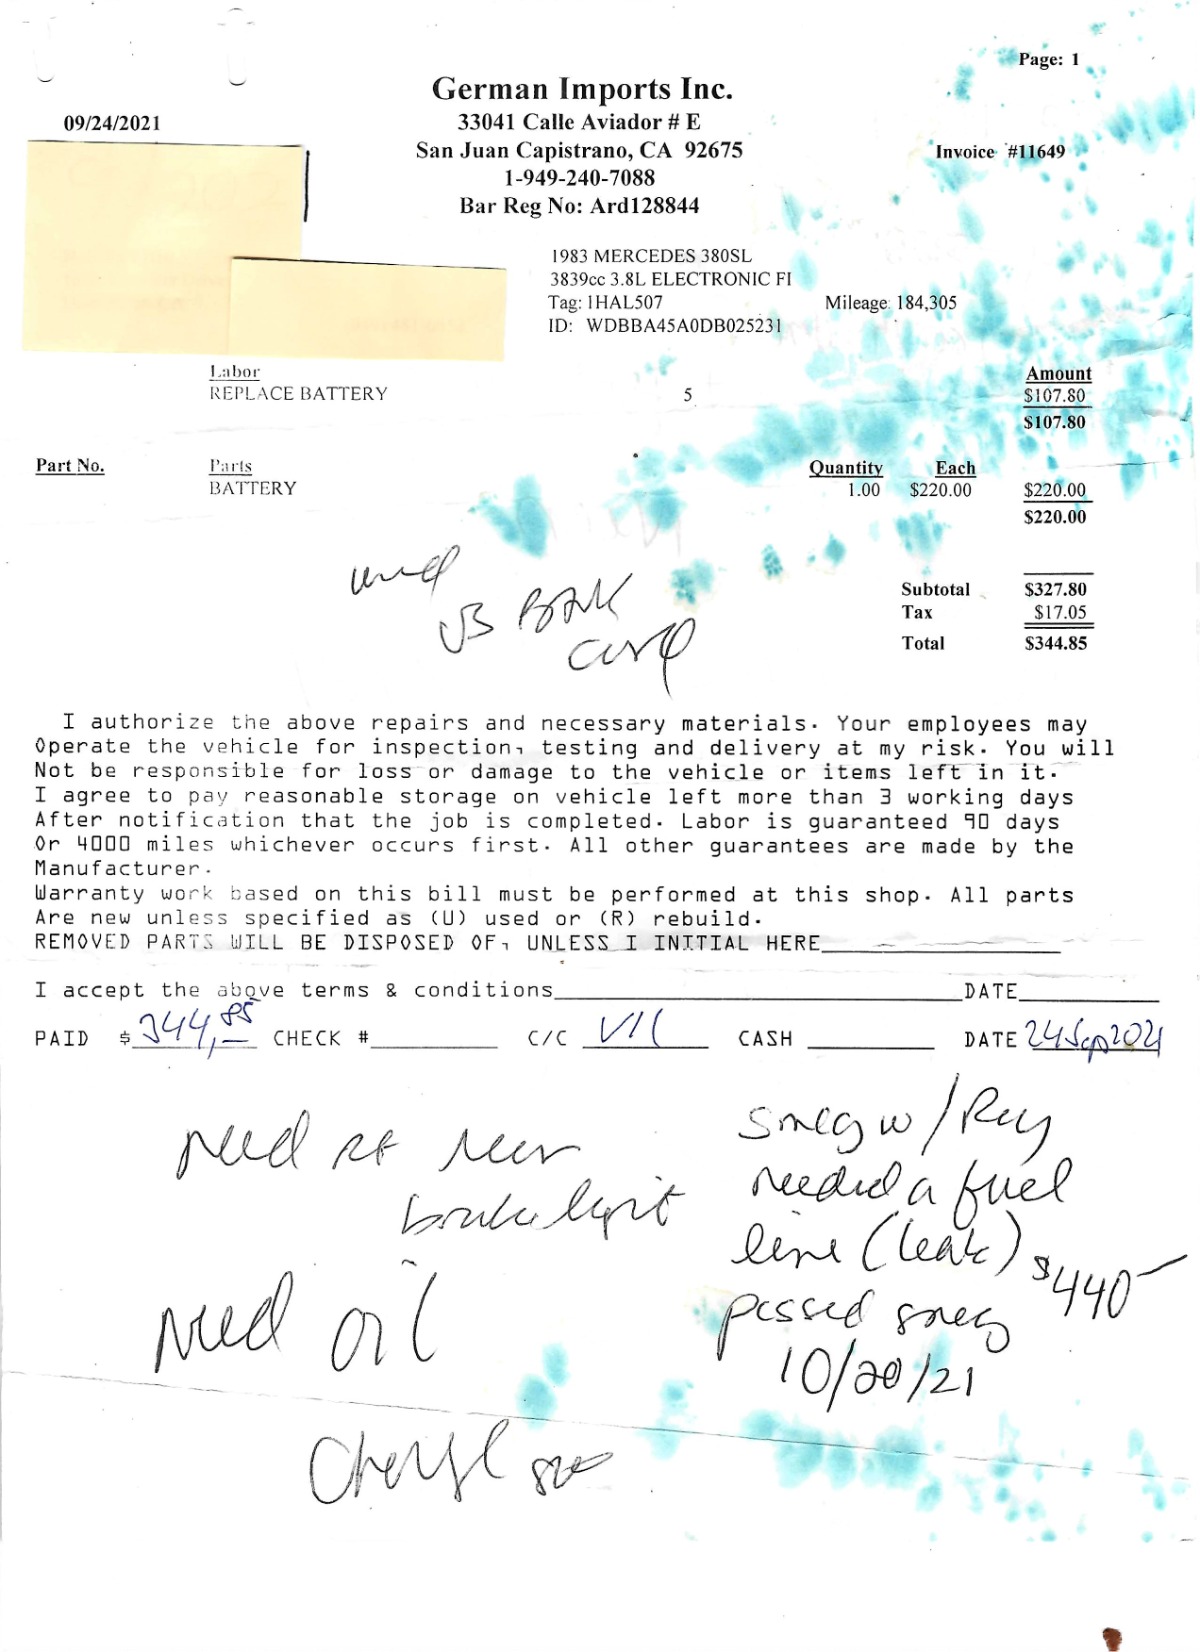 Page: 1
German Imports Inc.
09/24/2021
33041 Calle Aviador # E
San Juan Capistrano, CA 92675
Invoice #11649
1-949-240-7088
Bar Reg No: Ard128844
1983 MERCEDES 380SL
3839cc 3.8L ELECTRONIC FI
Tag: 1HAL507 Mileage: 184,305
ID: WDBBA45A0DB025231
Labor Amount
REPLACE BATTERY 5 $107.80
$107.80
Part No. Parts Quantity Each
BATTERY 1.00 $220.00 $220.00
$220.00
used
US BANK
card
Subtotal $327.80
Tax $17.05
Total $344.85
I authorize the above repairs and necessary materials. Your employees may
Operate the vehicle for inspection, testing and delivery at my risk. You will
Not be responsible for loss or damage to the vehicle or items left in it.
I agree to pay reasonable storage on vehicle left more than 3 working days
After notification that the job is completed. Labor is guaranteed 90 days
Or 4000 miles whichever occurs first. All other guarantees are made by the
Manufacturer.
Warranty work based on this bill must be performed at this shop. All parts
Are new unless specified as (U) used or (R) rebuild.
REMOVED PARTS WILL BE DISPOSED OF, UNLESS I INITIAL HERE
I accept the above terms & conditions DATE
PAID $ 344,85 CHECK # C/C CASH DATE 24Sep2021
need rt rear
brake light
need oil
Cheryl
smog w/Ray
needed a fuel
line (leak) $440
passed smog
10/20/21